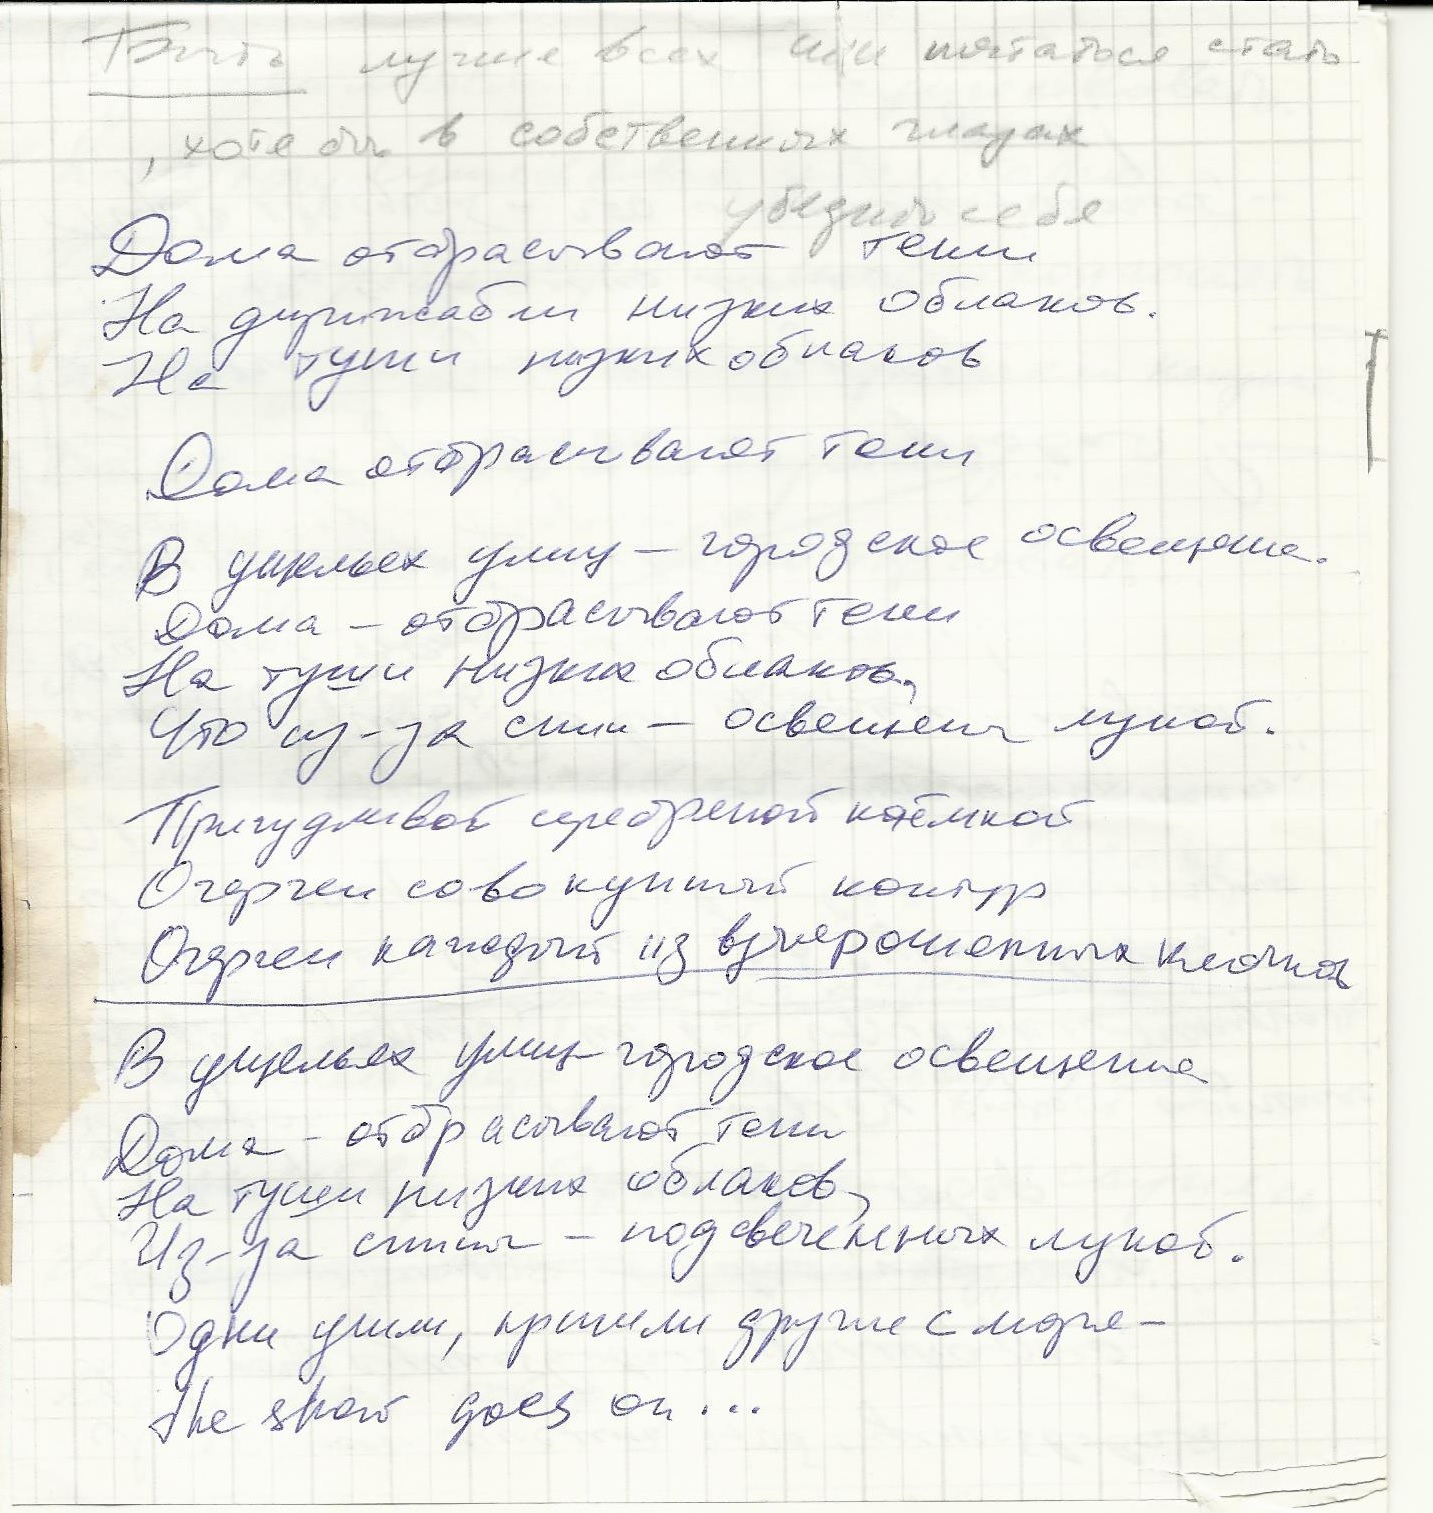 Быть лучше всех или пытаться стать
, хотя бы в собственных глазах
убедить себя
Дома отбрасывают тени
На дирижабли низких облаков.
На туши низких облаков
Дома отбрасывают тени
В ущельях улиц – городское освещение.
Дома – отбрасывают тени
На туши низких облаков,
Что из-за спин – освещены луной.
Причудливой серебреной каёмкой
Очерчен совокупный контур
Очерчен каждый из вчерашних клочков
В ущельях улиц – городское освещение
Дома – отбрасывают тени
На туши низких облаков,
Из-за спины – подсвеченных луной.
Одни ушли, пришли другие с моря –
The show goes on...